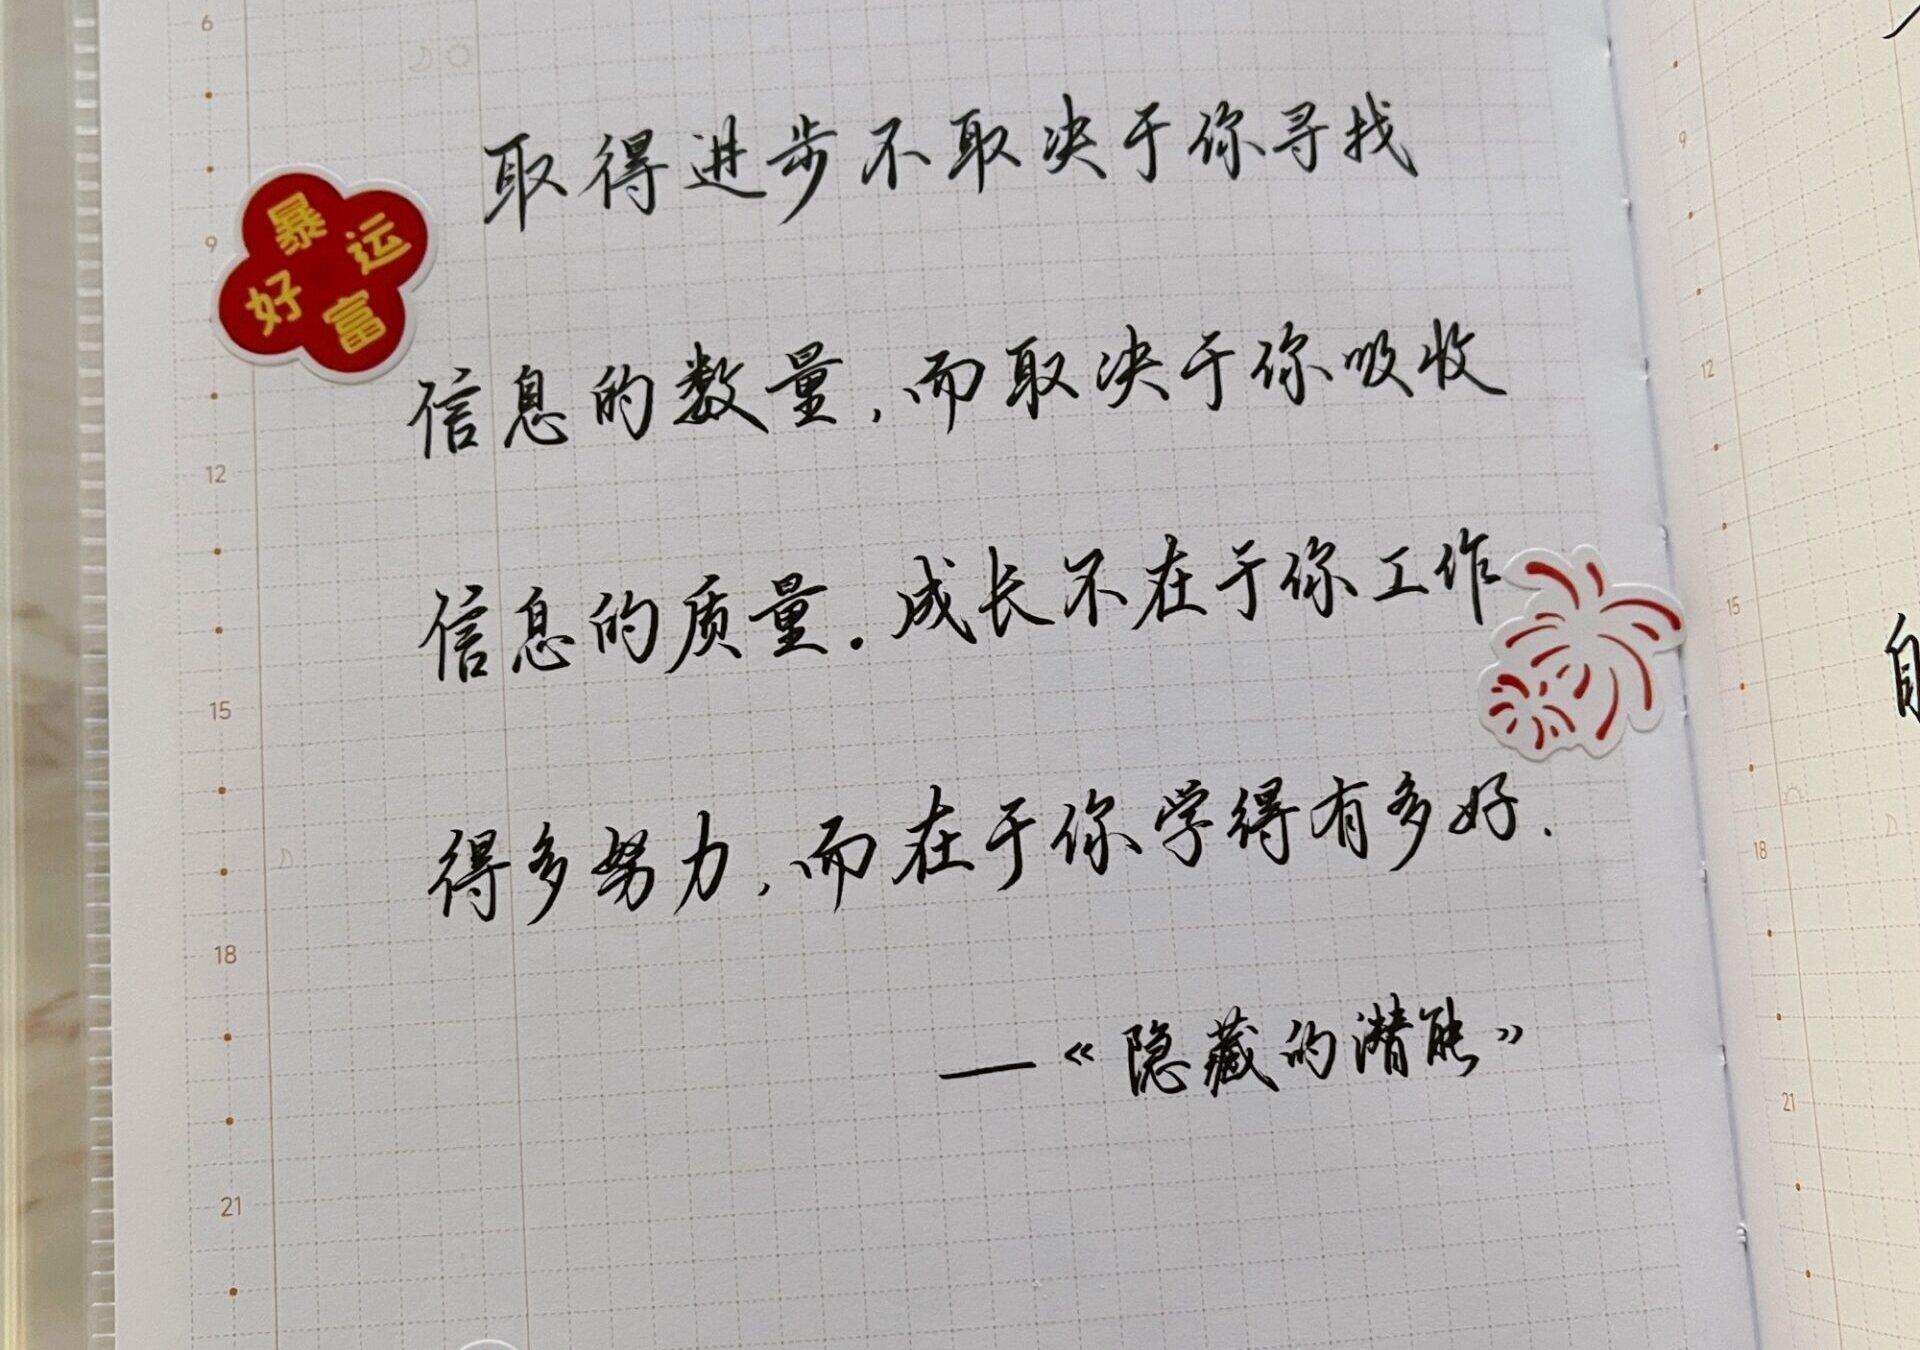 取得进步不取决于你寻找
信息的数量,而取决于你吸收
信息的质量.成长不在于你工作
得多努力,而在于你学得有多好.
—《隐藏的潜能》
暴富
好运
6
9
12
15
18
21
9
12
15
18
21
自